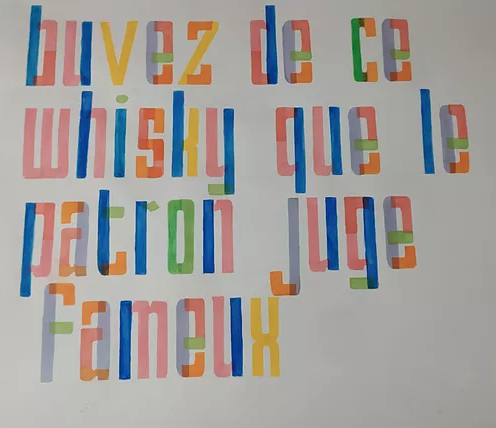 buvez de ce
whisky que le
patron juge
fameux